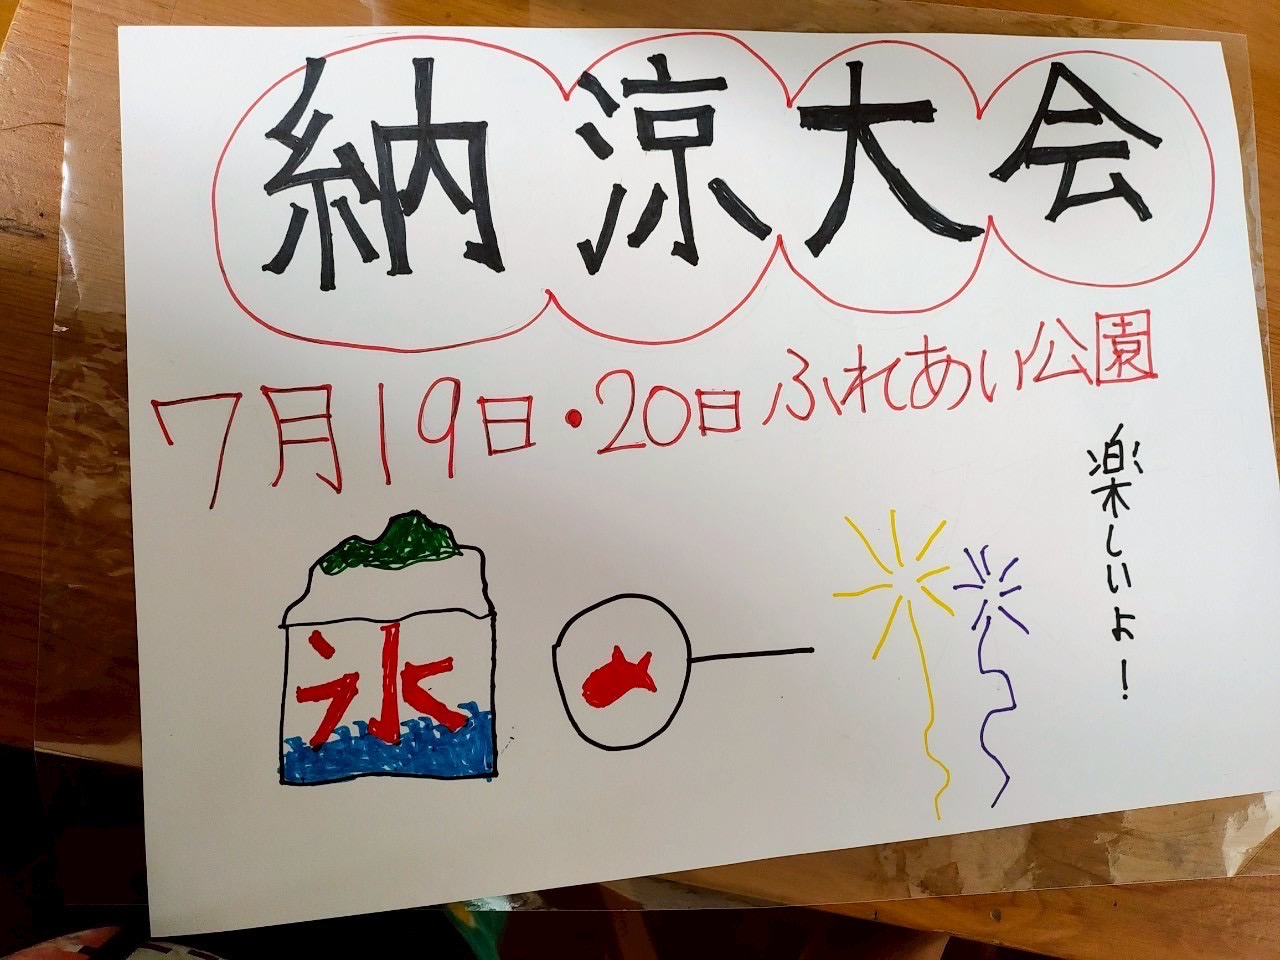 納涼大会
7月19日・20日 ふれあい公園
楽しいよ!
氷